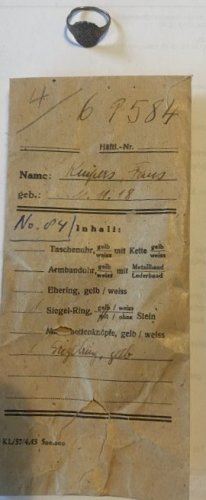 4/ 6 P584
Häftl.-Nr.
Name: Kuipers Frans
geb.: 11.18
No. 04/ Inhalt:
Taschenuhr, gelb weiss mit Kette gelb weiss
Armbanduhr, gelb weiss mit Metallband Lederband
Ehering, gelb / weiss
1 Siegel-Ring, gelb / weiss mit / ohne Stein
Manschettenknöpfe, gelb / weiss
gelb
KL/37/4.43 500.000